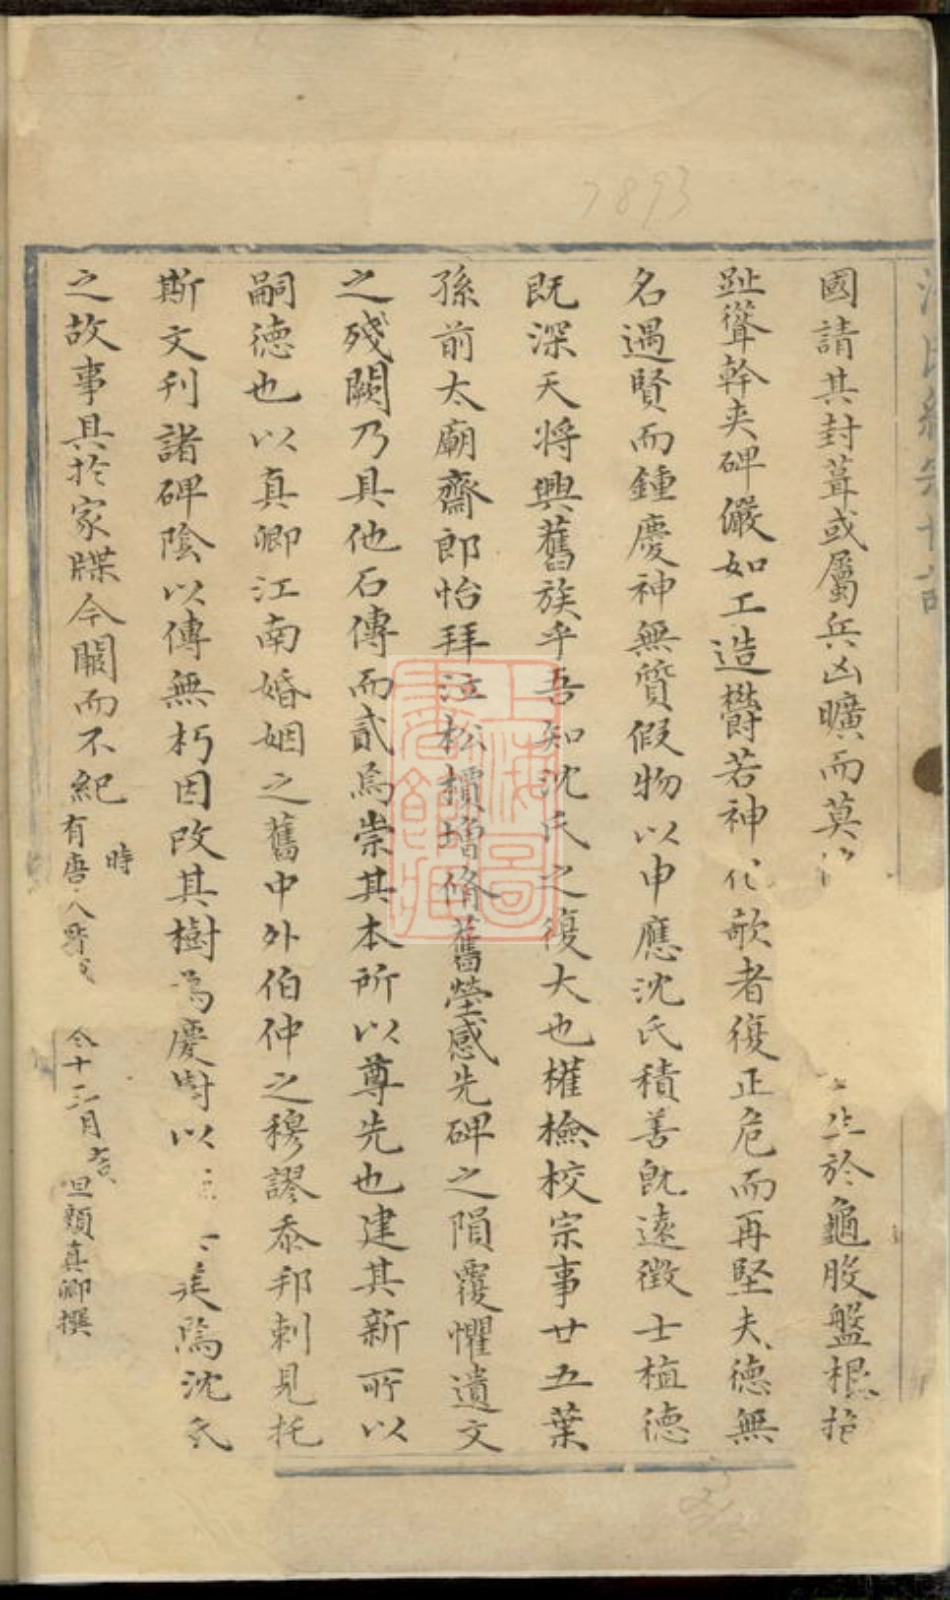 國請其封葺或屬兵凶曠而莫 於龜股盤根
趾聳幹夾碑儼如工造欝若神 欹者復正危而再堅夫德無
名遇賢而鍾慶神無質假物以申應沈氏積善既遠徵士植德
既深天將興舊族乎吾知沈氏之復大也權檢校宗事廿五葉
孫前太廟齋郎怡拜泣松檟增脩舊塋感先碑之隕覆懼遺文
之殘闕乃具他石傳而貳焉崇其本所以尊先也建其新所以
嗣德也以真卿江南婚姻之舊中外伯仲之穆謬忝邦刺見托
斯文刊諸碑陰以傳無朽因改其樹為慶樹以 沈氏
之故事具於家牒今闕而不紀
時有唐 月 顏真卿撰
7893
上海圖書館藏